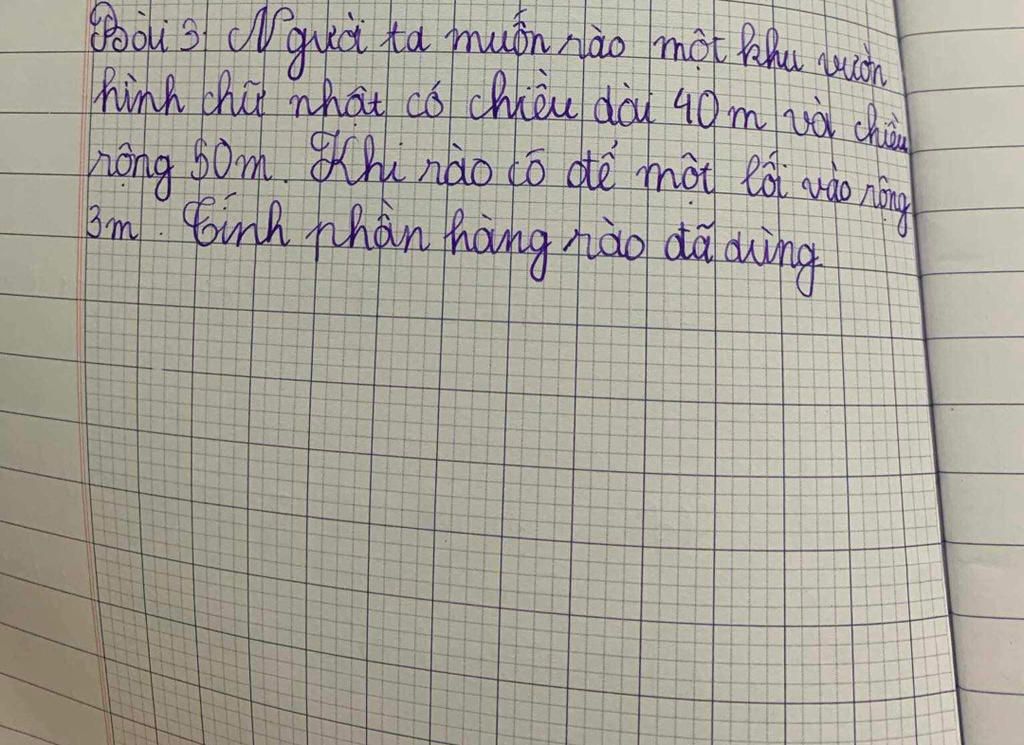 Bài 3 Người ta muốn rào một khu vườn
hình chữ nhât có chiều dài 40 m và chiều
rộng 50m. Khi rào có để một lối vào rộng
3m. Tính phần hàng rào đã dùng